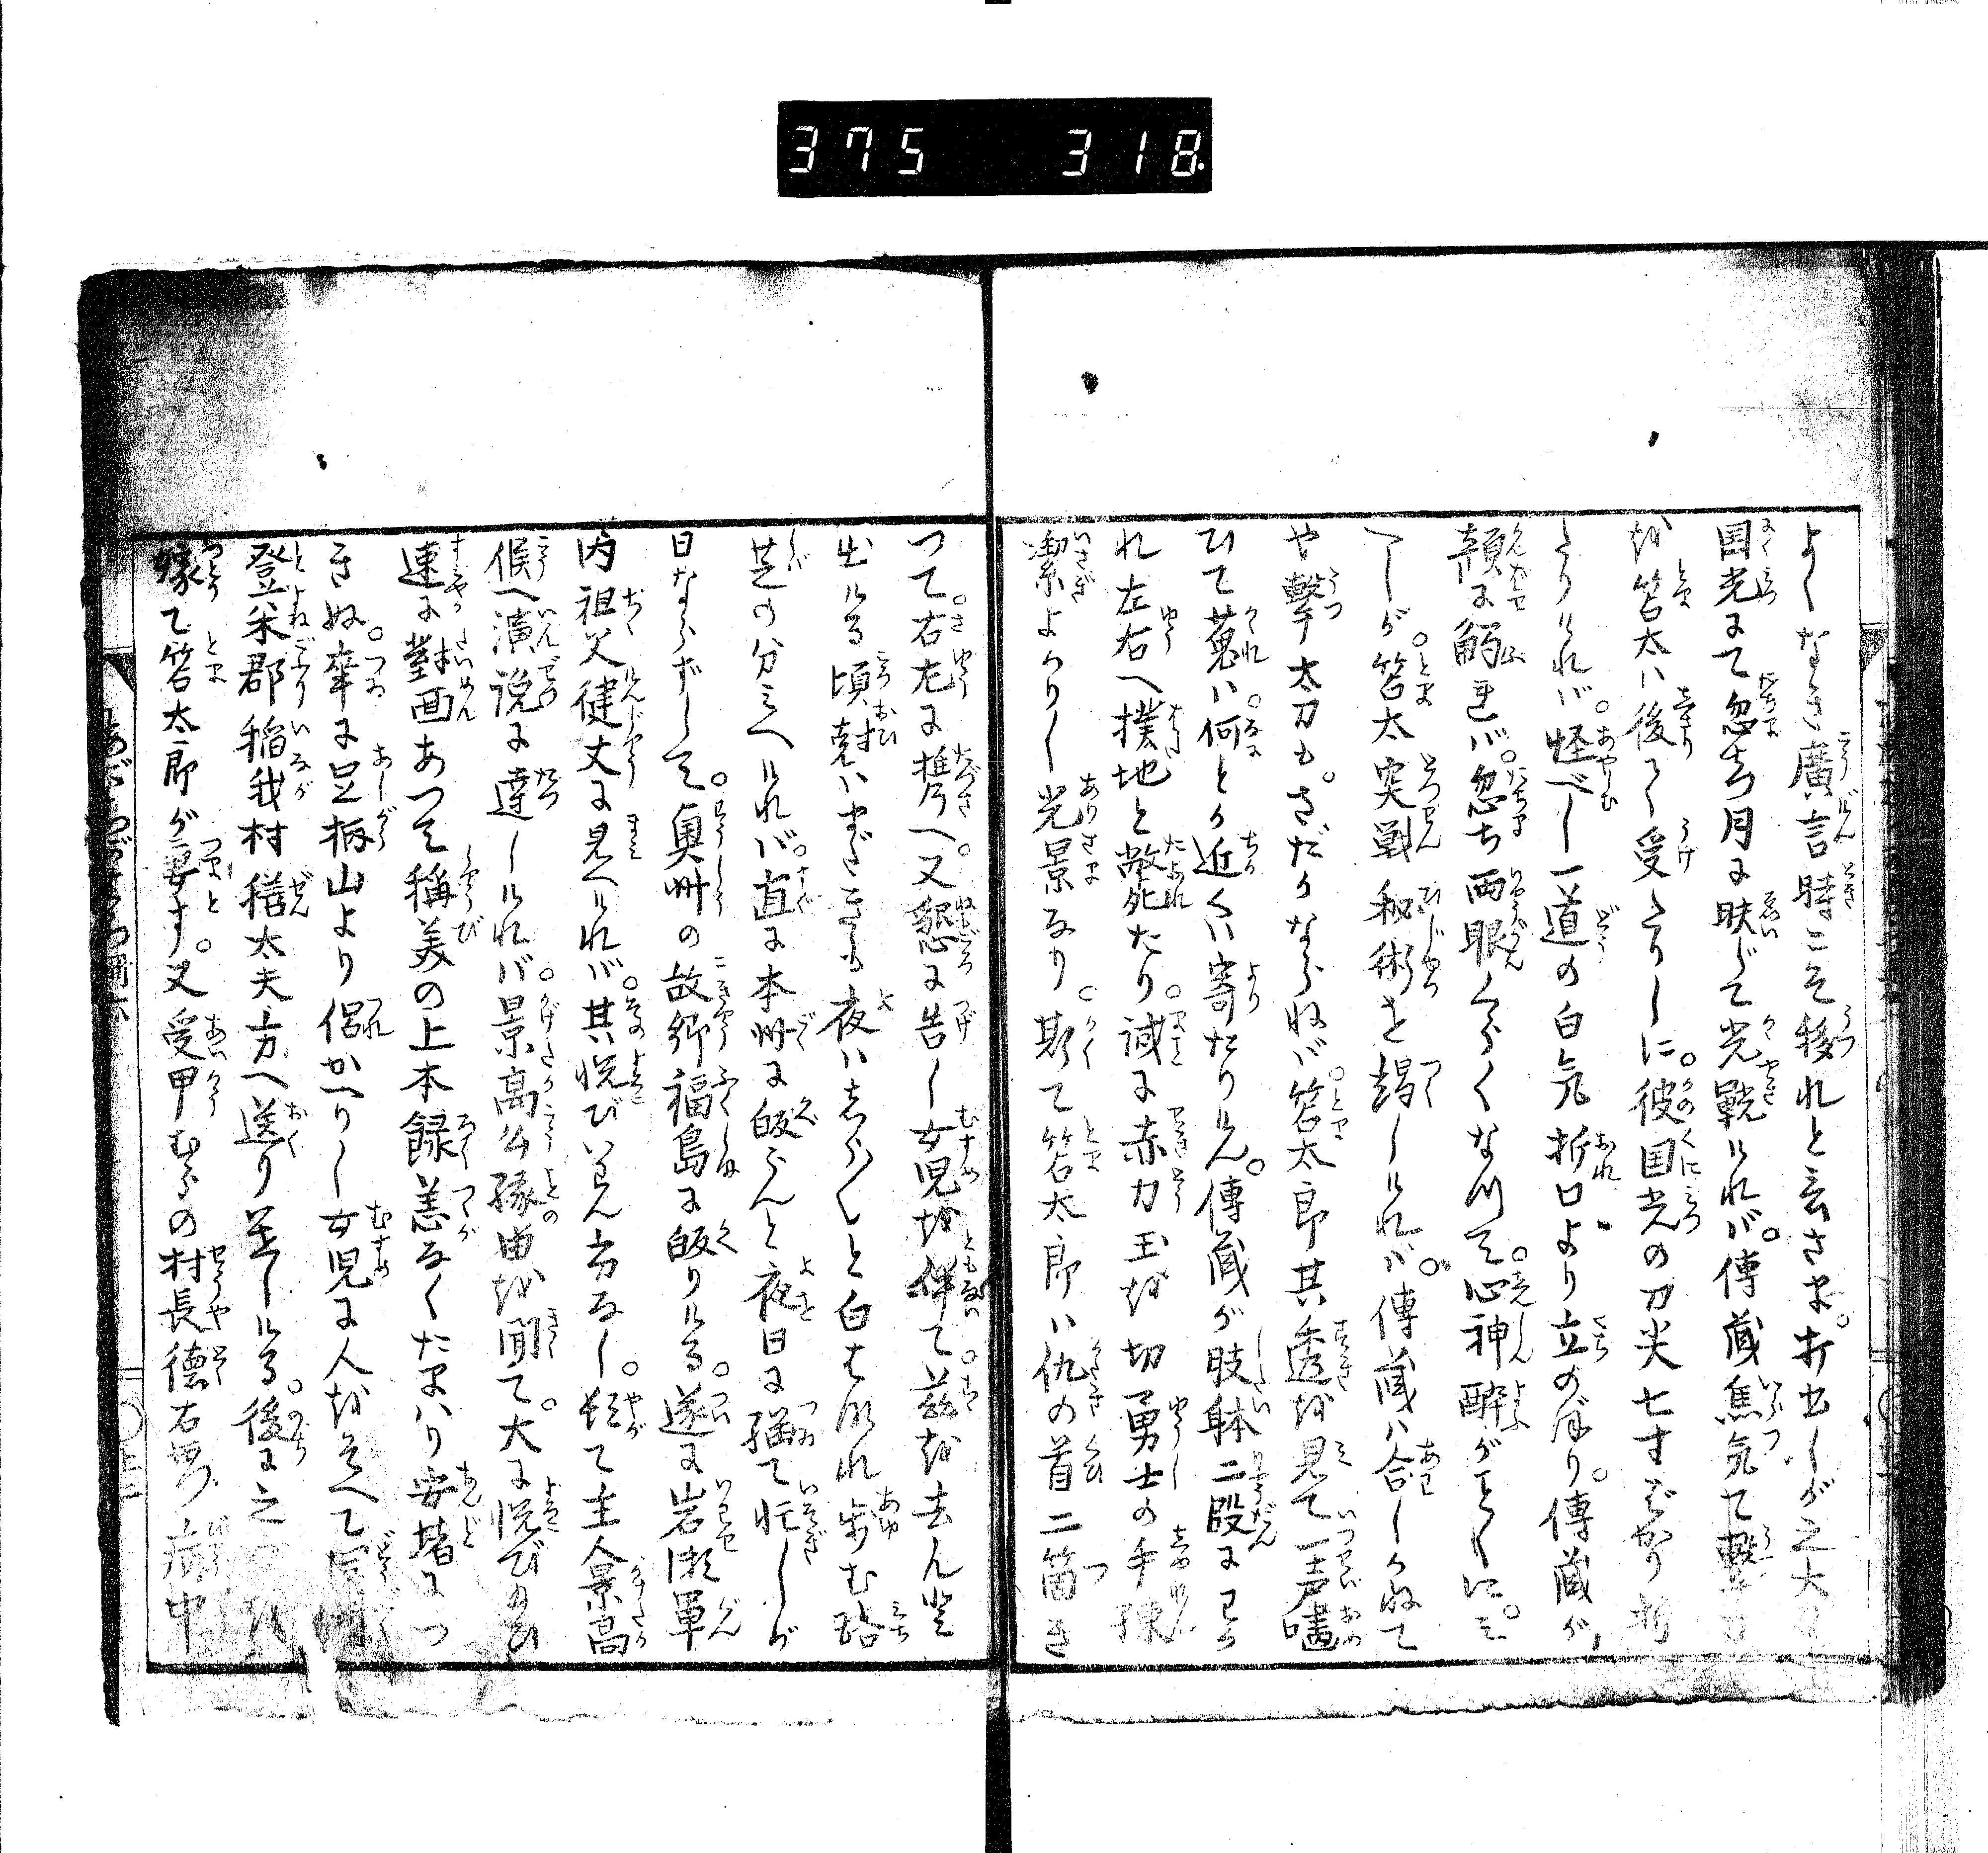 375 318
よくなき廣言時こそ移れと言さま。打出しが之大
国光にて忽ち月に映じて光輝けれバ。傳蔵焦気て撃刀
を笘太ハ後て受とりしに。彼国光の刀尖七寸ばかり折
とりけれバ。怪べし一道の白気折口より立のぼり。傳蔵が
顔に觸れバ。忽ち両眼くらくなりて。心神酔がごとくに。
しが。笘太突戦秘術を竭しけれバ。傳蔵ハ合しかねて
や撃太刀も。さだかならねバ笘太郎其透を見て一声嘯
ひて蒐ハ。何とか近くハ寄たりけん。傳蔵が肢躰二段にわか
れ左右へ撲地と斃死たり。誠に赤刀玉を切勇士の手煉
潔よかりし光景なり。斯て笘太郎ハ仇の首二箇さ
つて。右左に携へ。又懇に告し女児を伴て。茲を去んと
出ける頃刻ハまださる夜ハしら〳〵と白はなれ歩む路
芝の分ミへけれバ。直に本州に皈らんと夜を日に繼て忙しが
日ならずして。奥州の故郷福島に皈りける。遂に岩瀬軍
内祖父健丈に見へけれバ。其悦びいはん方なし。軈て主人景高
候へ演説に達しけれバ。景高公縁由を聞て。大に悦び給ひ
速に對面あつて稱美の上本録恙なくたまハり安堵につ
きぬ。率に足柄山より侶かへりし女児に人をそへて同
登米郡稲我村稽太夫方へ送り并しける。後に之
嫁て笘太郎が妻とす。又受甲むらの村長徳右ヱ門病中